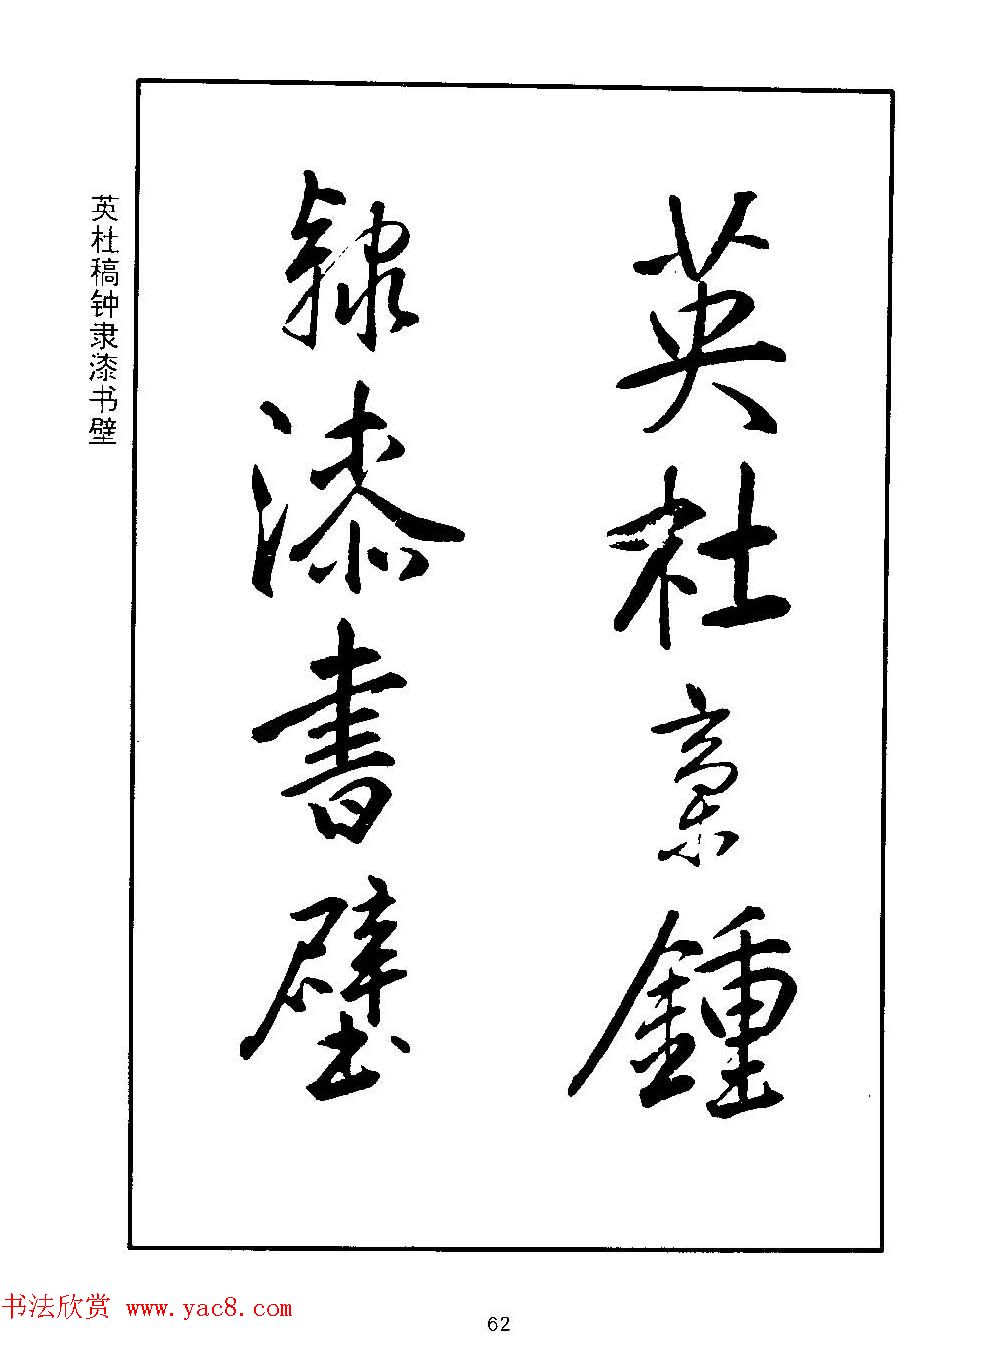 英杜稾鍾
隸漆書壁
英杜稿钟隶漆书壁
书法欣赏 www.yac8.com
62